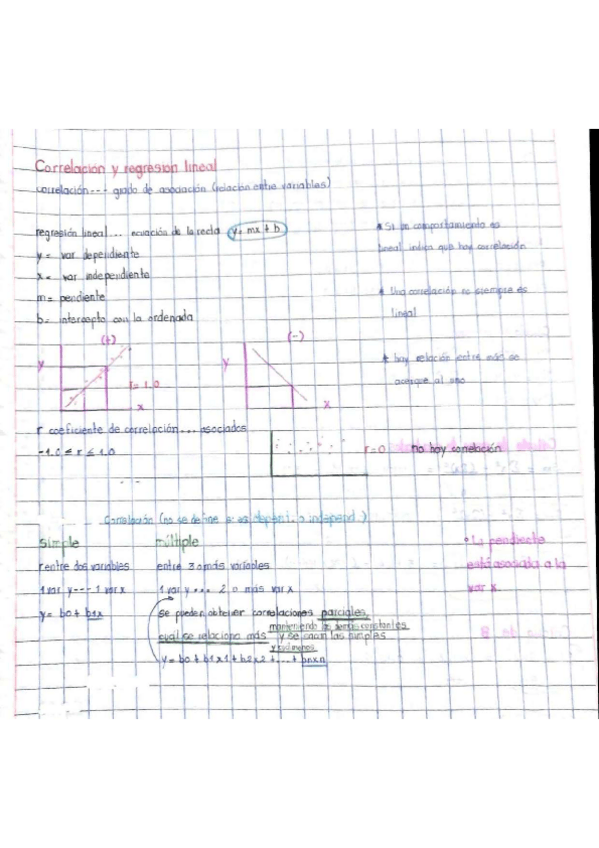 Correlación y regresion lineal
correlación--- grado de asociación (relación entre variables)
regresión lineal... ecuación de la recta y= mx + b
y = var dependiente
x = var independiente
m = pendiente
b= intercepto con la ordenada
* Si un comportamiento es
lineal indica que hay correlación
* Una correlación no siempre es
lineal
* hay relación entre más se
acerque al uno
(+)
y
r= 1.0
x
(-)
y
x
r coeficiente de correlación... asociados
-1.0 ≤ r ≤ 1.0
r=0 no hay correlación
Correlación (no se define si es depen. o independ.)
simple
rentre dos variables
1 var y--- 1 var x
y= b0 + b1x
múltiple
entre 3 o más variables
1 var y--- 2 o más var x
se pueden obtener correlaciones parciales,
manteniendo las demás constantes
cual se relaciona más y se sacan las simples
y=b0+b1x1+b2x2+...+bnxn
• La pendiente
está asociada a la
var x.